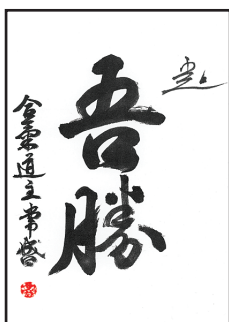 吾勝
合氣道主常盛